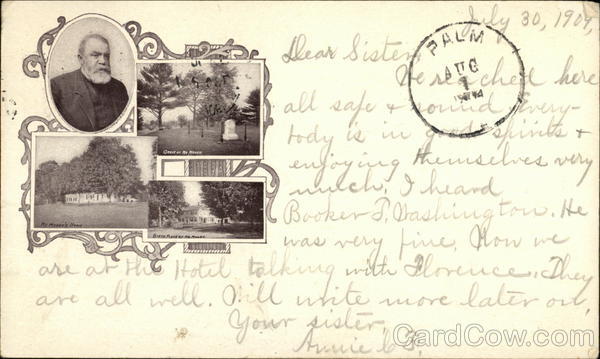 July 30, 1904,
Dear Sister,
We reached here
all safe & sound. Every-
body is in good spirits &
enjoying themselves very
much. I heard
Booker T. Washington. He
was very fine. Now we
are at the Hotel talking with Florence. They
are all well. Will write more later on.
Your sister,
Annie
PALM
AUG
1
GRAVE OF MR MOODY
MR MOODY'S HOME
BIRTH PLACE OF MR MOODY
CardCow.com